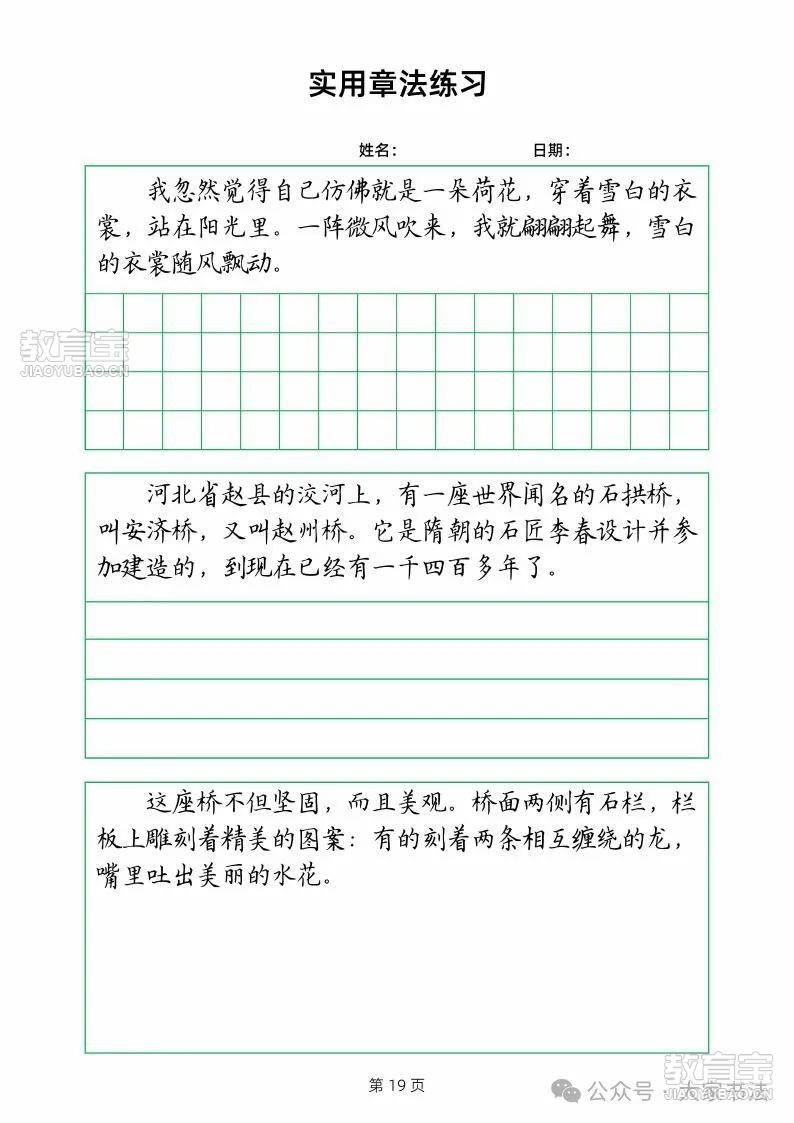 实用章法练习
姓名： 日期：
我忽然觉得自己仿佛就是一朵荷花，穿着雪白的衣
裳，站在阳光里。一阵微风吹来，我就翩翩起舞，雪白
的衣裳随风飘动。
教育宝
JIAOYUBAO.CN
河北省赵县的洨河上，有一座世界闻名的石拱桥，
叫安济桥，又叫赵州桥。它是隋朝的石匠李春设计并参
加建造的，到现在已经有一千四百多年了。
这座桥不但坚固，而且美观。桥面两侧有石栏，栏
板上雕刻着精美的图案：有的刻着两条相互缠绕的龙，
嘴里吐出美丽的水花。
第 19 页
教育宝
JIAOYUBAO.CN
公众号 · 大家书法